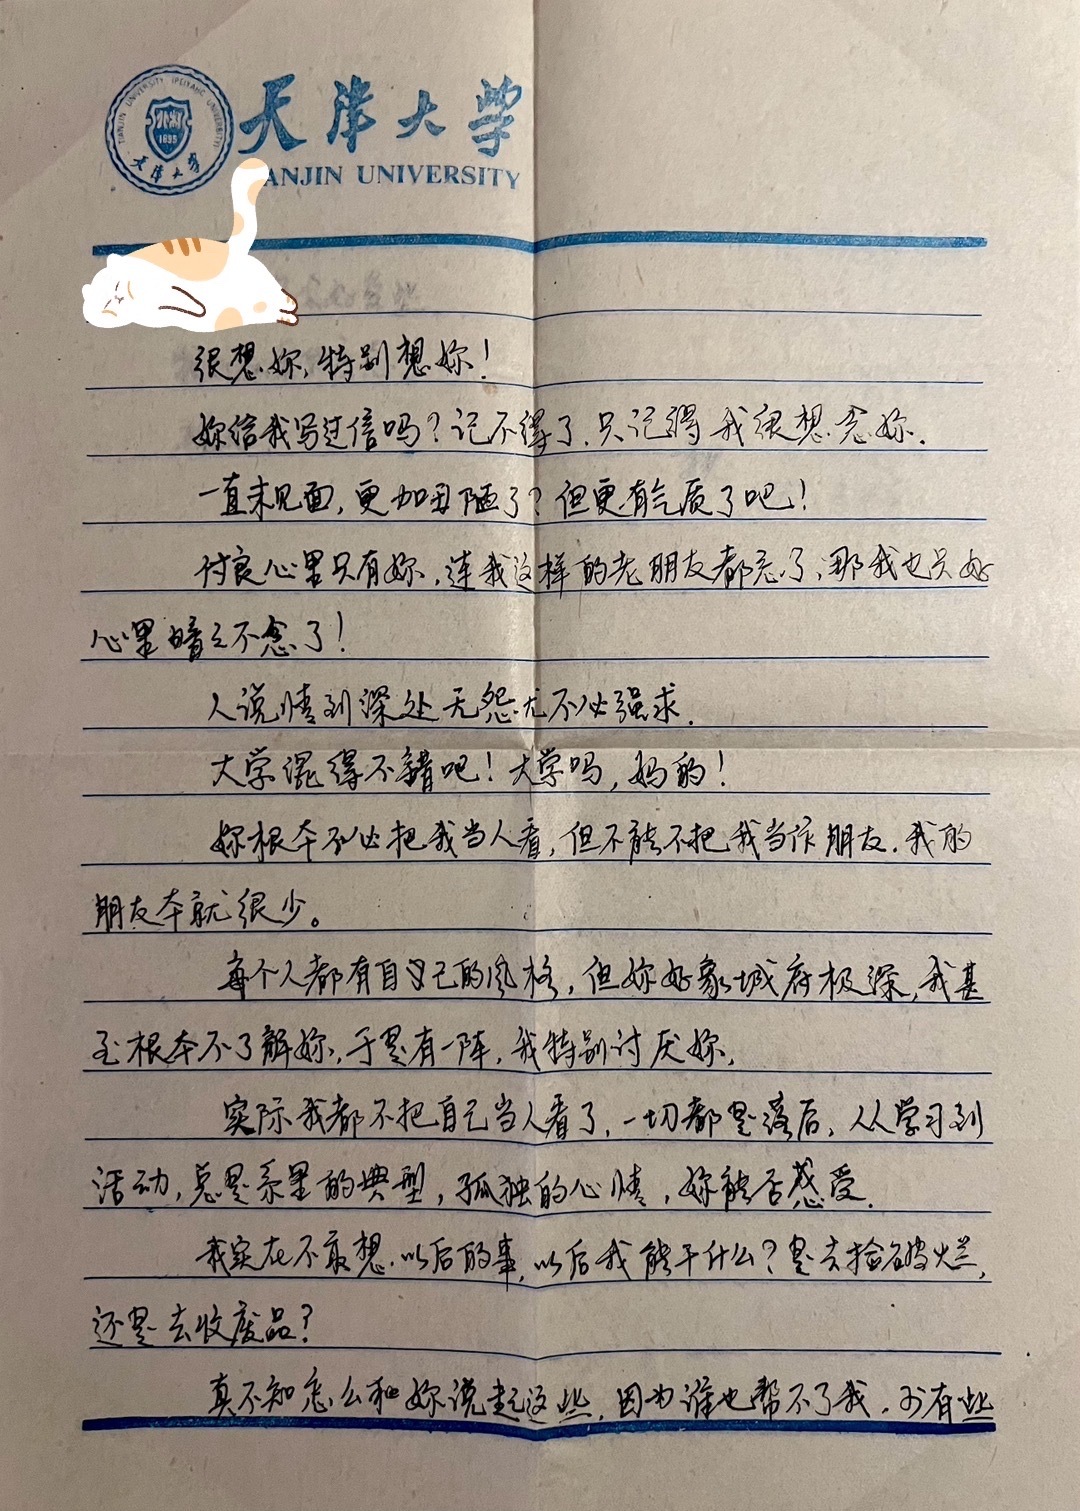 TIANJIN UNIVERSITY (PEIYANG UNIVERSITY)
北洋
1895
天津大学
天津大学
ANJIN UNIVERSITY
很想妳,特别想妳!
妳给我写过信吗?记不得了.只记得我很想念妳.
一直未见面,更加丑陋了?但更有气质了吧!
付良心里只有妳,连我这样的老朋友都忘了,那我也只好
心里暗之不念了!
人说情到深处无怨尤不必强求.
大学混得不错吧!大学吗,妈的!
妳根本不必把我当人看,但不能不把我当作朋友.我的
朋友本就很少。
每个人都有自己的风格,但妳好象城府极深,我甚
至根本不了解妳,于是有一阵,我特别讨厌妳,
实际我都不把自己当人看了,一切都是落后,从学习到
活动,总是系里的典型,孤独的心情,妳能否感受.
我实在不敢想.以后的事,以后我能干什么?是去捡破烂,
还是去收废品?
真不知怎么和妳说起这些,因为谁也帮不了我.少有些